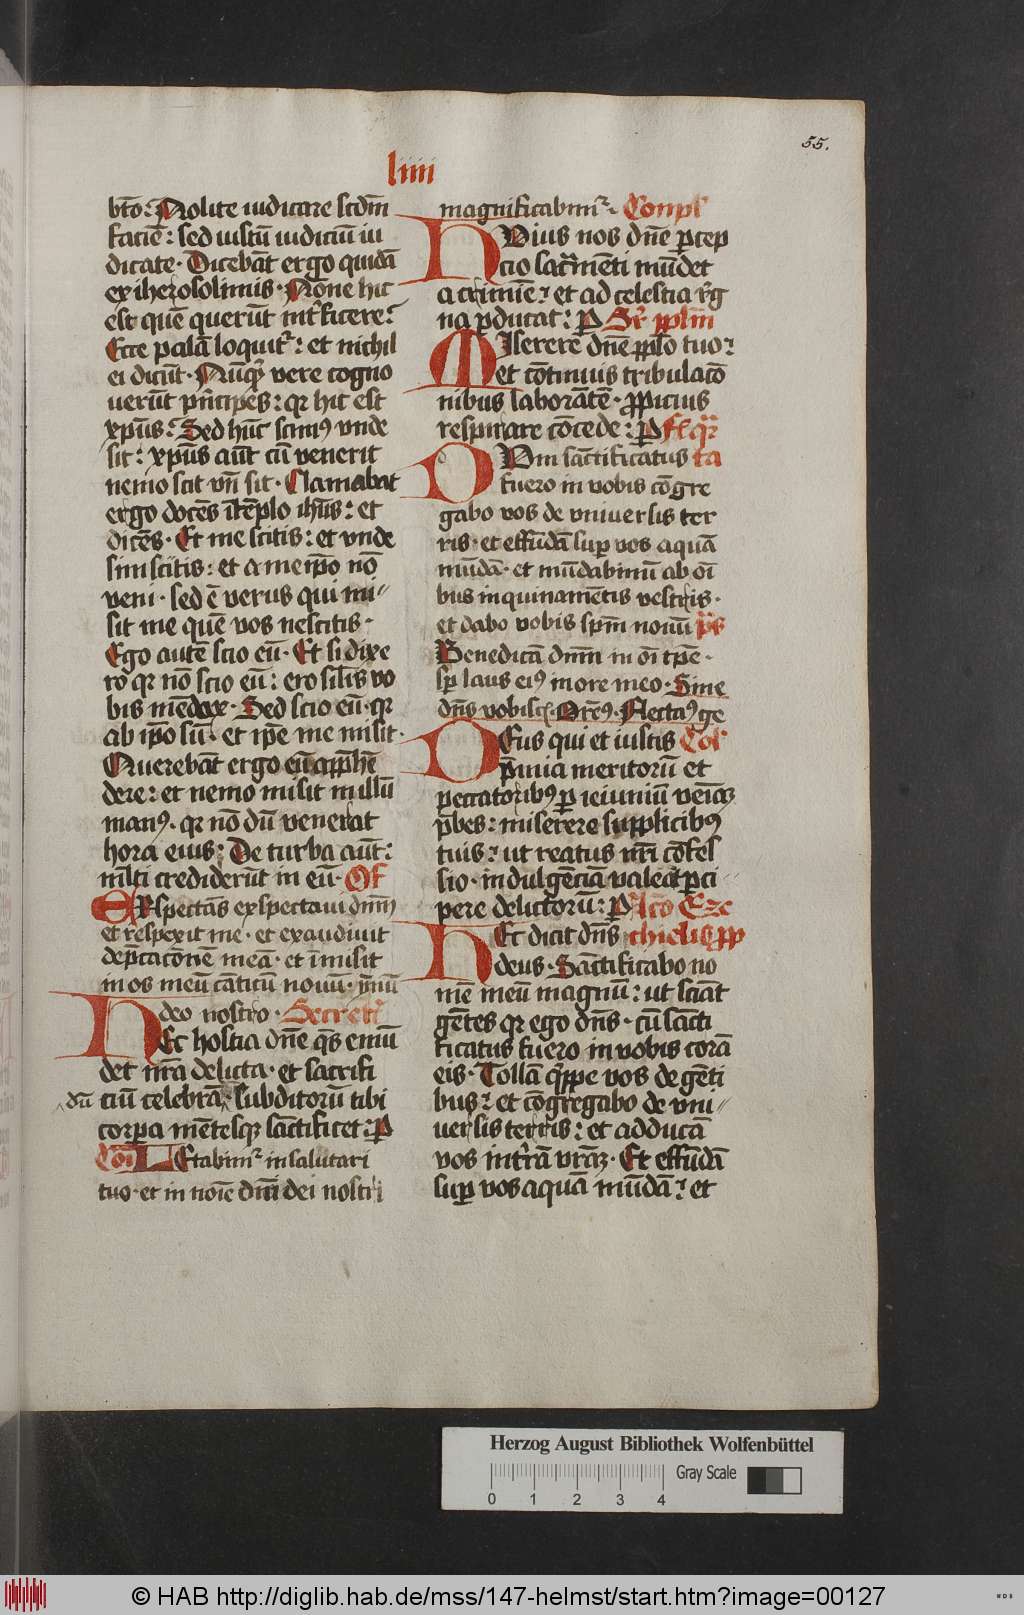 55.
liiii
bt̄o : Nolite iudicare scd̄m
faciē : sed iustū iudiciū iu
dicate · Dicebāt ergo quidā
ex iherosolimis · Nōne hic
est quē querūt int̄ficere :
Ecce palā loquit᷑ : et nichil
ei dicūt · Nūq᷑ vere cogno
uerūt pn̄cipes : qr hic est
xp̄us : Sed hūc scimꝰ vnde
sit : xp̄us aūt cū venerit
nemo scit vn̄ sit · Clamabat
ergo docēs ī tēplo ih̄us : et
dicēs · Et me scitis : et vnde
sim scitis : et a me ip̄o nō
veni · sed ē verus qui mi-
sit me quē vos nescitis ·
Ego autē scio eū · Et si dixe
ro qr nō scio eū : ero sil̄is vo
bis mēdax · Sed scio eū · qr
ab ip̄o sū · et ip̄e me misit ·
Querebāt ergo eū app̄hē
dere : et nemo misit in illū
manꝰ · qr nō dū venerat
hora eius : De turba aūt :
ml̄ti crediderūt in eū · Of
EXspectās exspectaui dn̄m
et respexit me · et exaudiuit
dep̄cacōnē meā · et īmisit
in os meū cāticū nouū · ym̄nū
deo nostro · Secret᷑
HEc hostia dn̄e qs̄ emū
det nr̄a delicta · et sacrifi
ciū celebrā · subditorū tibi
dū
corpa mētesqꝫ sāctificet : P
Cōī LEtabim᷑ in salutari
tuo · et in noīe dn̄i dei nostri
magnificabim᷑ · Conpl
HVius nos dn̄e ꝑcep
cio sacr̄mēti mūdet
a crimīe : et ad celestia rēg
na ꝑducat : P Sr̄ ppl̄m
MIserere dn̄e pplo tuo :
et cōtinuis tribulacō
nibus laborātē · ꝓpicius
respirare cōcede : P f̄l q᷑r
DVm sāctificatus ta
fuero in vobis cōgre
gabo vos de vniuersis ter
ris · et effūdā suꝑ vos aquā
mūdā · et mūdabimū ab oī
bus inquinamētis vestris ·
et dabo vobis spm̄ nouū p̄s
Benedicā dn̄m in oī tp̄e ·
sꝑ laus eiꝰ in ore meo · Sine
dn̄s vobisc̄ · Or̄emꝰ · Flectamꝰ ge
DEus qui et iustis Col
p̄mia meritorū et
peccatoribꝰ ꝑ ieiuniū veīaꝫ
p̄bes : miserere supplicibꝰ
tuis : ut reatus nr̄i cōfes
sio · indulgēciā valeat ꝑci-
pere delictorū : P lcō Eze
HEc dicit dn̄s chielis pp
deus · Sāctificabo no
mē meū magnū : ut sciāt
gētes qr ego dn̄s · cū sācti
ficatus fuero in vobis corā
eis · Tollā q᷑ppe vos de gēti
bus : et cōgregabo de vni-
uersis terris : et adducā
vos int̄rā vr̄aꝫ · Et effūdā
suꝑ vos aquā mūdā : et
Herzog August Bibliothek Wolfenbüttel
Gray Scale
0 1 2 3 4
© HAB http://diglib.hab.de/mss/147-helmst/start.htm?image=00127